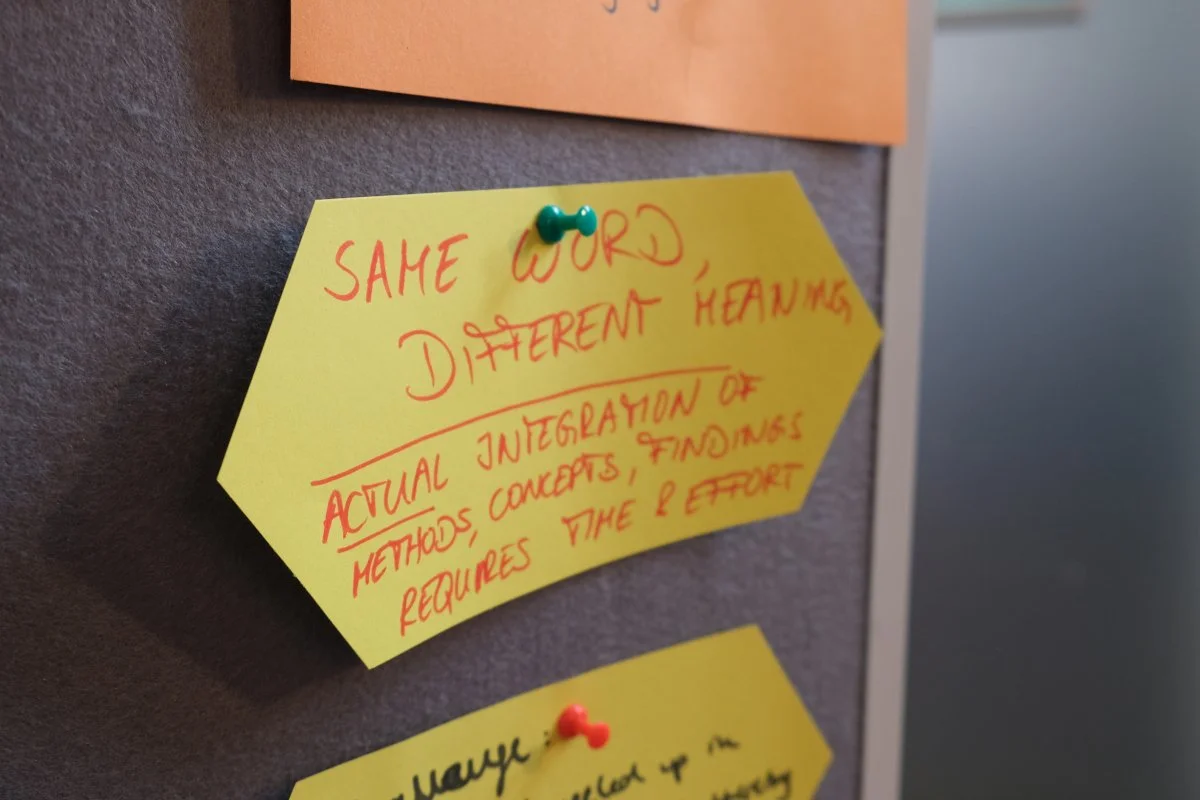 SAME WORD,
DIFFERENT MEANING
ACTUAL INTEGRATION OF
METHODS, CONCEPTS, FINDINGS
REQUIRES TIME & EFFORT
up in